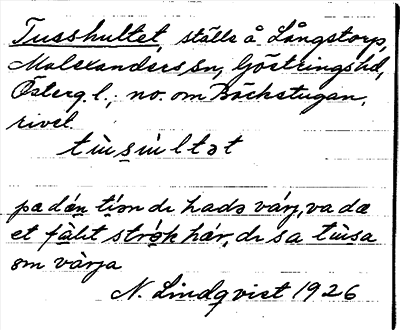 Tusshultet, ställe å Långstorp,
Malexanders sn, Göstrings hd,
Österg. l.; no. om Bäckstugan,
rivet.
tùsùltət
pa dǽn tíən di hadə várj, va dæ
et fàlit strǿk hár, di sa tùsa
om vàrja
N. Lindqvist 1926